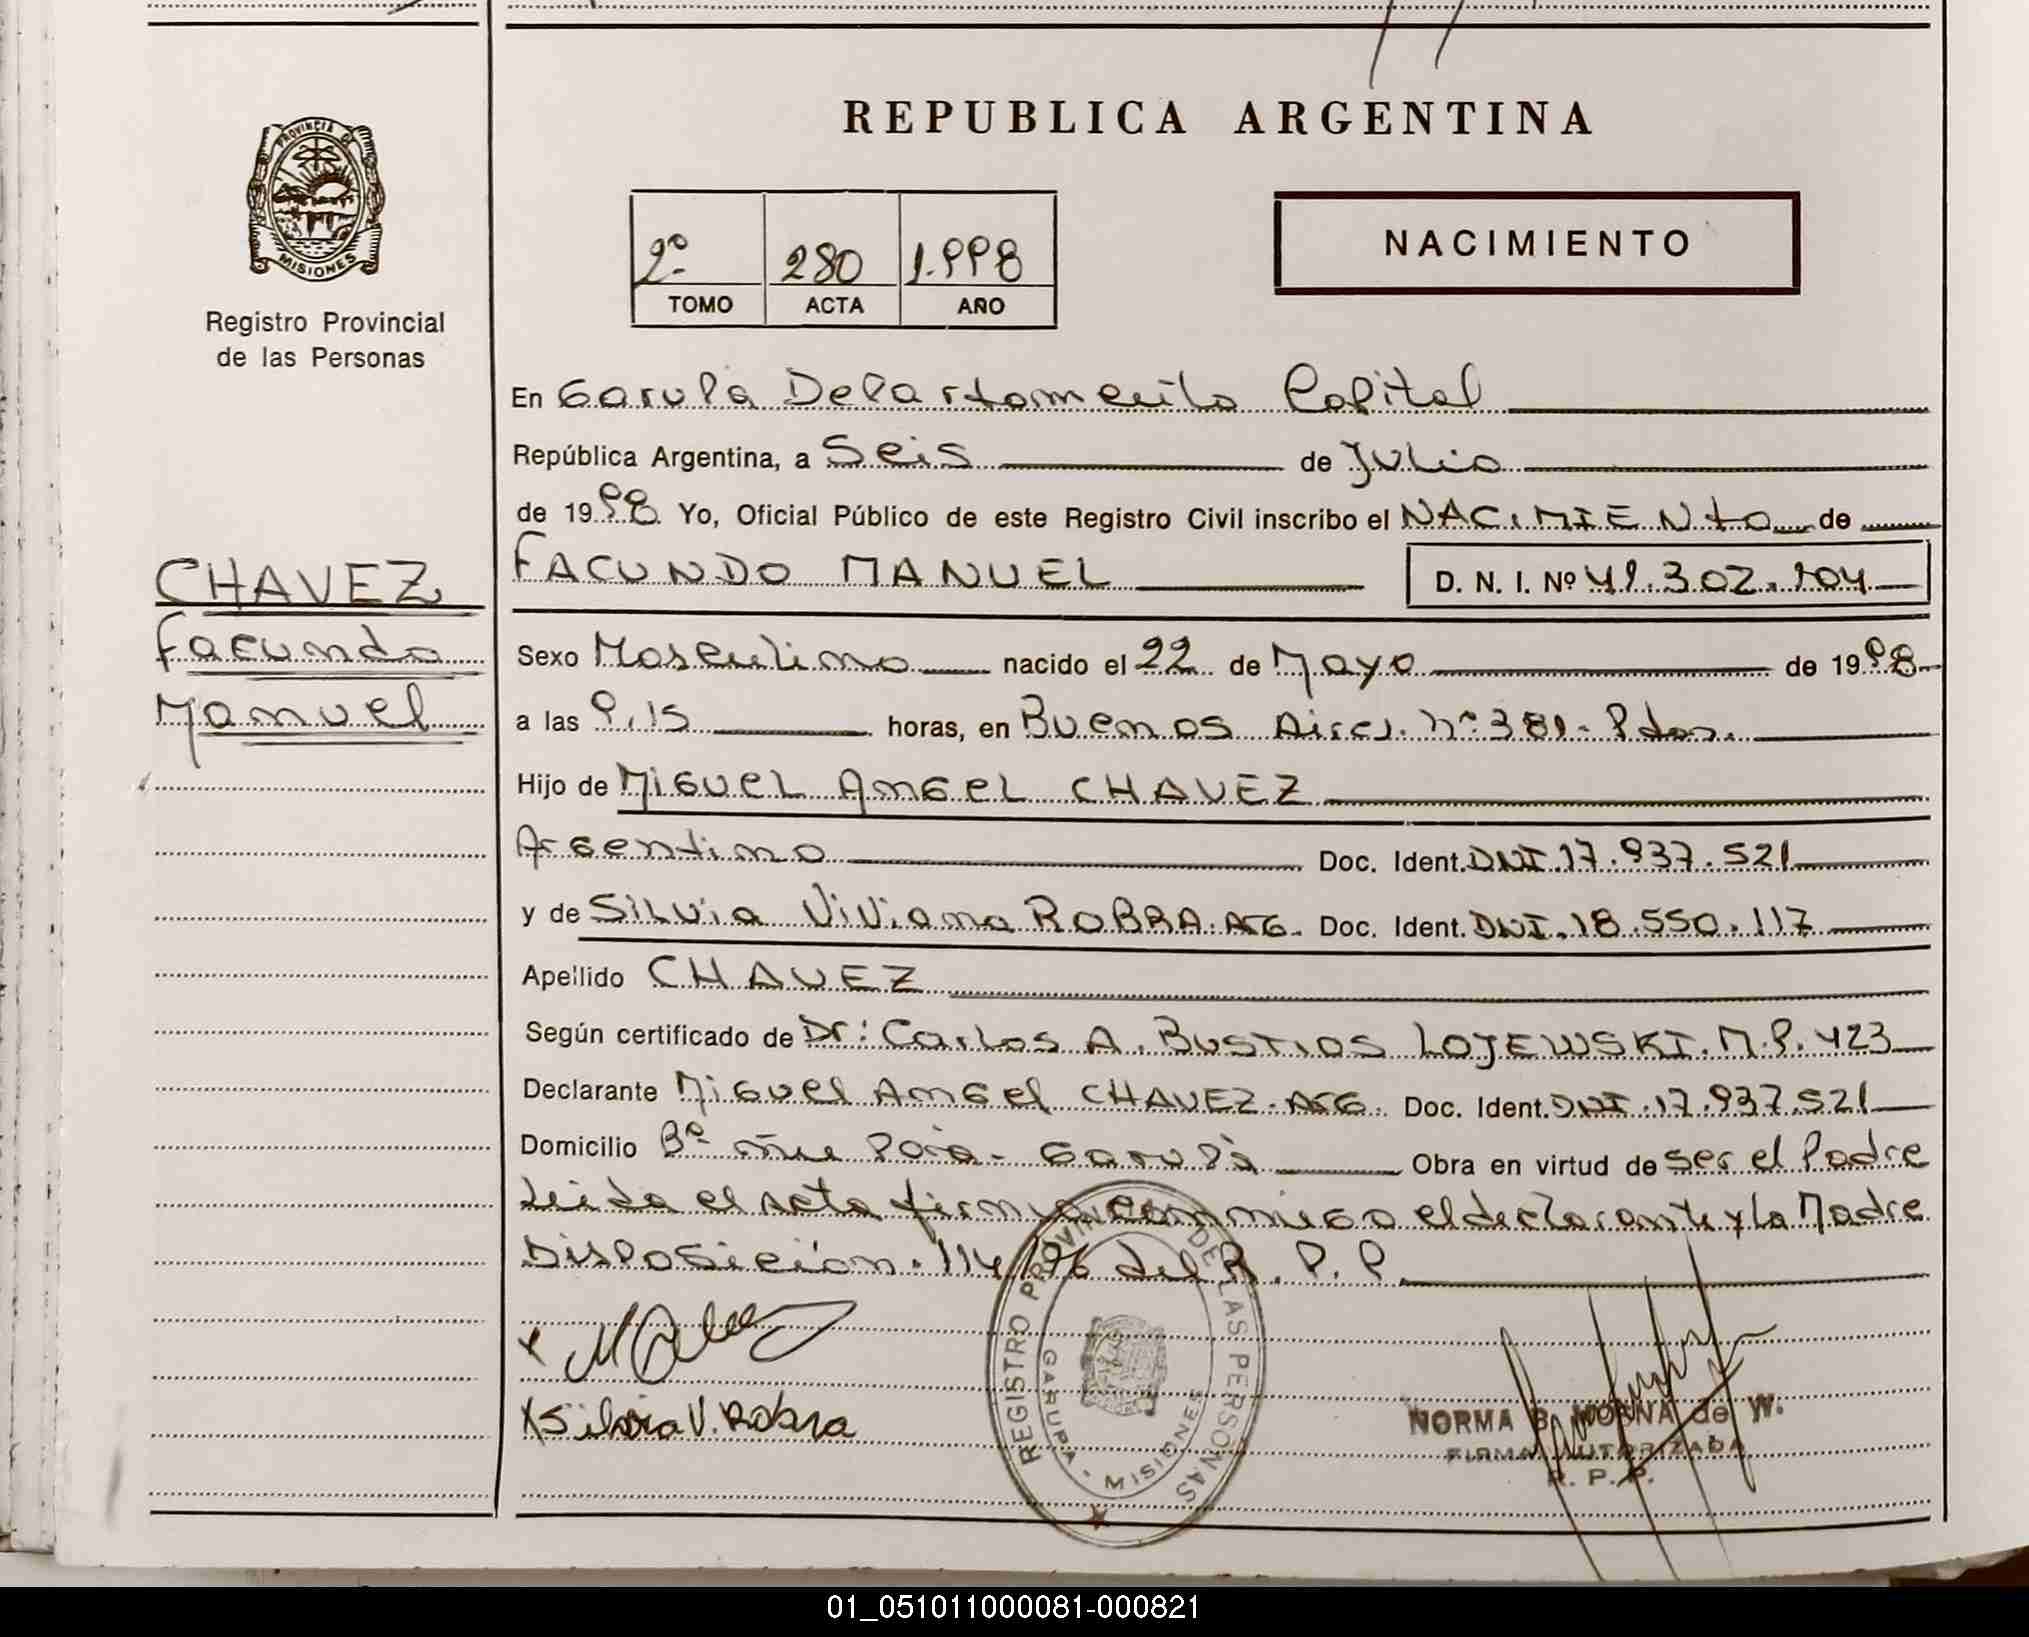 REPUBLICA ARGENTINA
PROVINCIA DE MISIONES
Registro Provincial
de las Personas
2º 280 1.998
TOMO ACTA AÑO
NACIMIENTO
En Garupá Departamento Capital
República Argentina, a Seis de Julio
de 1998 Yo, Oficial Público de este Registro Civil inscribo el NACIMIENTO de
CHAVEZ
Facundo
Manuel
FACUNDO MANUEL D. N. I. Nº 41.302.104
Sexo Masculino nacido el 22 de Mayo de 1998
a las 9,15 horas, en Buenos Aires. nº 381- Pdas.
Hijo de MIGUEL ANGEL CHAVEZ
Argentino Doc. Ident. DNI.17.937.521
y de SILVIA ViViana ROBRA. ARG. Doc. Ident. DNI.18.550.117
Apellido CHAVEZ
Según certificado de Dr: Carlos A. BUSTIOS LOJEWSKI. M.P. 423
Declarante Miguel Angel CHAVEZ. ARG. Doc. Ident. DNI.17.937.521
Domicilio Bº Ñu Porá- Garupá Obra en virtud de ser el Padre
Leida el acta firma conmigo el declarante y La Madre
Disposición. 114/96 del R. P. P
X
X Silvia V. Robra
REGISTRO PROVINCIAL DE LAS PERSONAS
GARUPA - MISIONES
NORMA B. de W.
FIRMA AUTORIZADA
R. P. P.
01_051011000081-000821